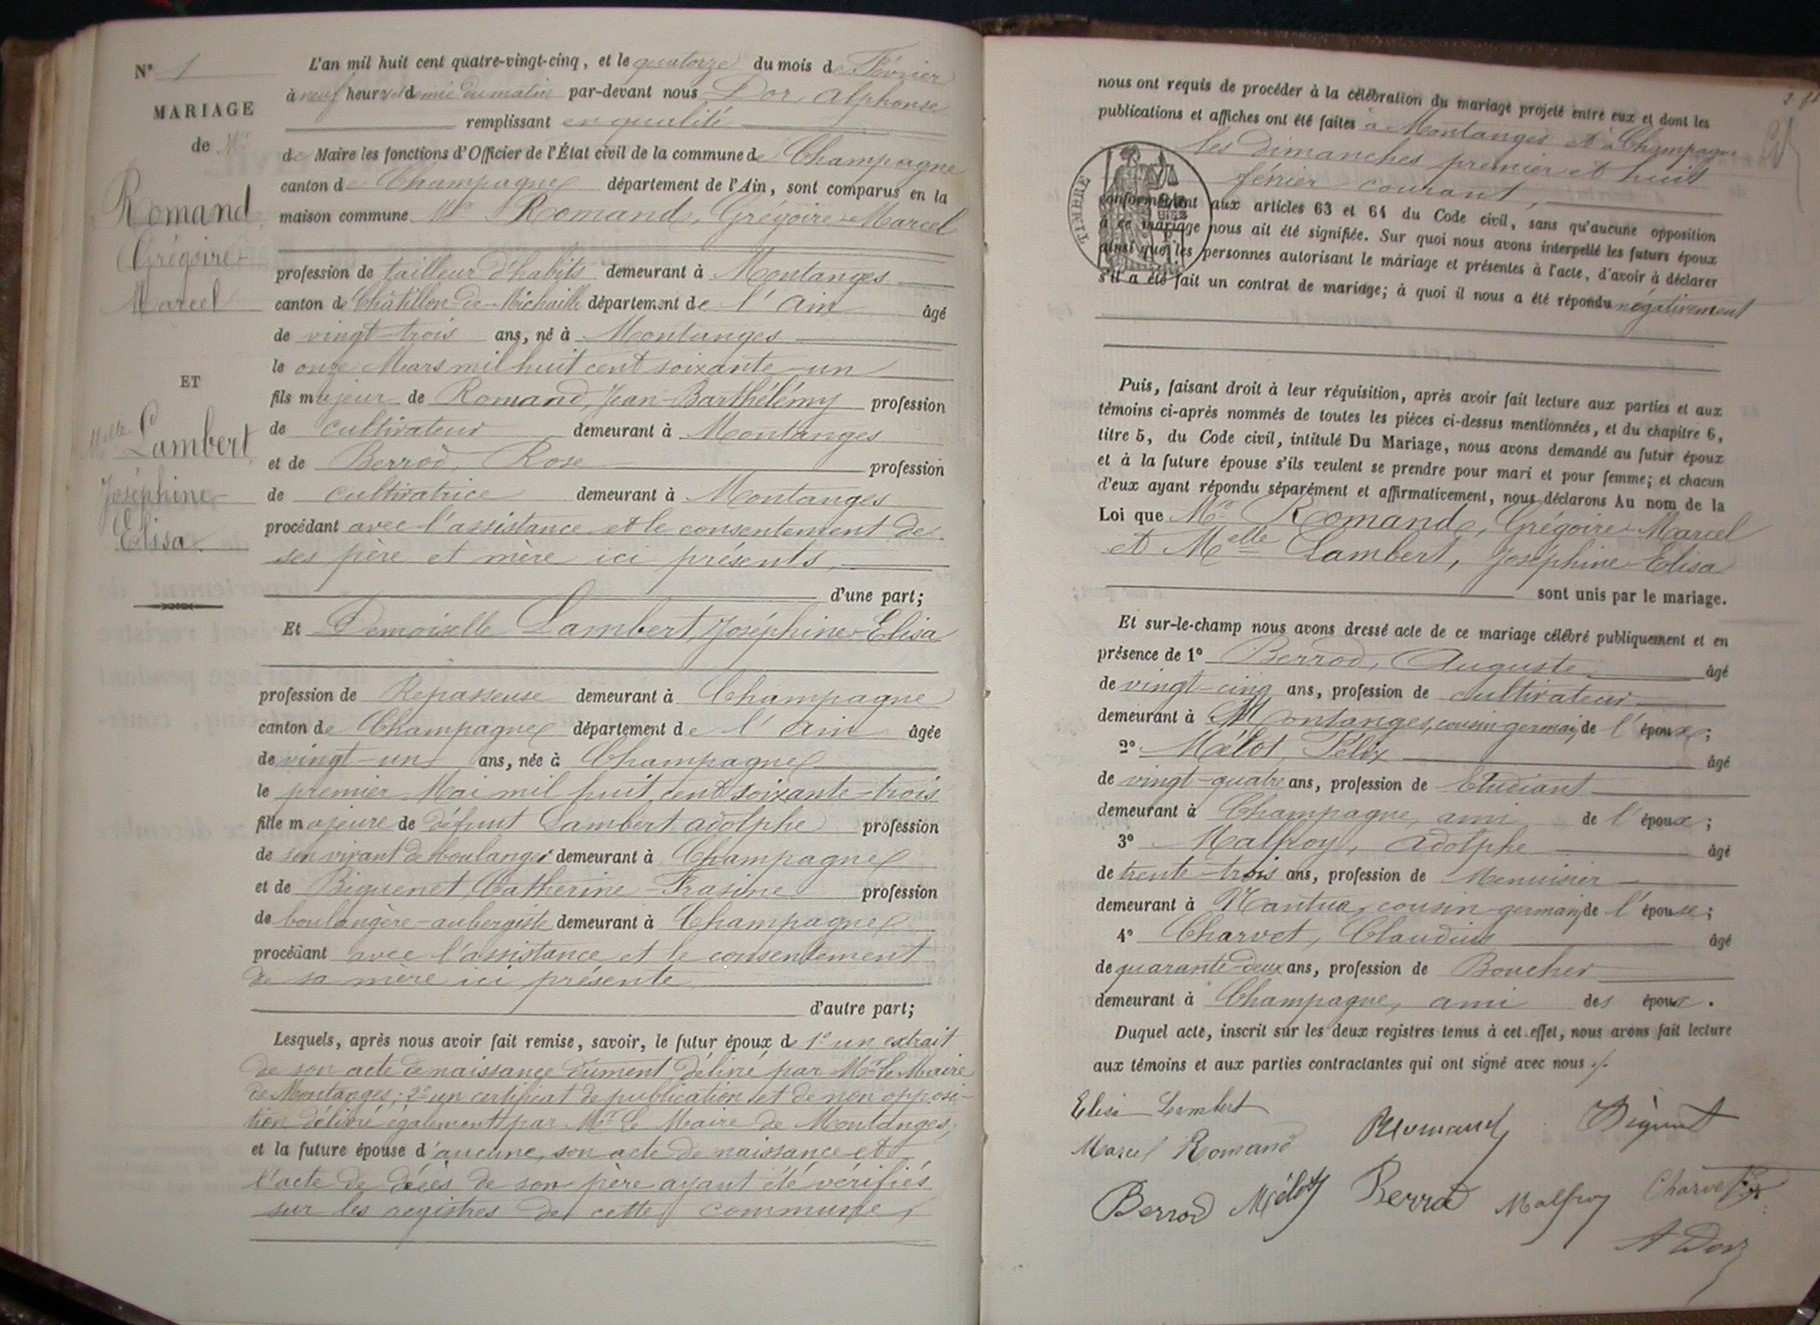 N° 1
MARIAGE
de Mr
Romand
Grégoire-
Marcel
ET
Melle Lambert
Joséphine-
Elisa
L'an mil huit cent quatre-vingt-cinq, et le quatorze du mois de Février
à neuf heures et demie du matin par-devant nous Dor, Alphonse
remplissant en qualité
de Maire les fonctions d'Officier de l'État civil de la commune de Champagne
canton de Champagne département de l'Ain, sont comparus en la
maison commune Mr Romand, Grégoire-Marcel
profession de tailleur d'habits demeurant à Montanges
canton de Châtillon-de-Michaille département de l'Ain âgé
de vingt-trois ans, né à Montanges
le onze Mars mil huit cent soixante-un
fils majeur de Romand, Jean-Barthélémy profession
de cultivateur demeurant à Montanges
et de Berrod, Rose profession
de cultivatrice demeurant à Montanges
procédant avec l'assistance et le consentement de
ses père et mère ici présents,
d'une part;
Et Demoiselle Lambert, Joséphine-Elisa
profession de Repasseuse demeurant à Champagne
canton de Champagne département de l'Ain âgée
de vingt-un ans, née à Champagne
le premier Mai mil huit cent soixante-trois
fille majeure de défunt Lambert Adolphe profession
de son vivant de boulanger demeurant à Champagne
et de Biguenet, Catherine-Frasine profession
de boulangère-aubergiste demeurant à Champagne
procédant avec l'assistance et le consentement
de sa mère ici présente
d'autre part;
Lesquels, après nous avoir fait remise, savoir, le futur époux de 1° un extrait
de son acte de naissance dûment délivré par Mr le Maire
de Montanges; 2° un certificat de publication et de non opposi-
tion délivré également par Mr le Maire de Montanges,
et la future épouse d'aucune, son acte de naissance et
l'acte de décès de son père ayant été vérifiés
sur les registres de cette commune,
nous ont requis de procéder à la célébration du mariage projeté entre eux et dont les
publications et affiches ont été faites à Montanges et à Champagne
les dimanches premier et huit
février courant,
TIMBRE
conformément aux articles 63 et 64 du Code civil, sans qu'aucune opposition
à ce mariage nous ait été signifiée. Sur quoi nous avons interpellé les futurs époux
ainsi que les personnes autorisant le mariage et présentes à l'acte, d'avoir à déclarer
s'il a été fait un contrat de mariage; à quoi il nous a été répondu négativement
Puis, faisant droit à leur réquisition, après avoir fait lecture aux parties et aux
témoins ci-après nommés de toutes les pièces ci-dessus mentionnées, et du chapitre 6,
titre 5, du Code civil, intitulé Du Mariage, nous avons demandé au futur époux
et à la future épouse s'ils veulent se prendre pour mari et pour femme; et chacun
d'eux ayant répondu séparément et affirmativement, nous déclarons Au nom de la
Loi que Mr Romand, Grégoire-Marcel
et Melle Lambert, Joséphine-Elisa
sont unis par le mariage.
Et sur-le-champ nous avons dressé acte de ce mariage célébré publiquement et en
présence de 1° Berrod, Auguste âgé
de vingt-cinq ans, profession de cultivateur
demeurant à Montanges, cousin germain de l'époux;
2° Mélot, Félix âgé
de vingt-quatre ans, profession de Etudiant
demeurant à Champagne, ami de l'époux;
3° Malfroy, Adolphe âgé
de trente-trois ans, profession de Menuisier
demeurant à Nantua, cousin-germain de l'épouse;
4° Charvet, Claudius âgé
de quarante-deux ans, profession de Boucher
demeurant à Champagne, ami des époux.
Duquel acte, inscrit sur les deux registres tenus à cet effet, nous avons fait lecture
aux témoins et aux parties contractantes qui ont signé avec nous
Elisa Lambert
Marcel Romand Romand
Berrod Mélot Berrod Malfroy Charvet
A Dor